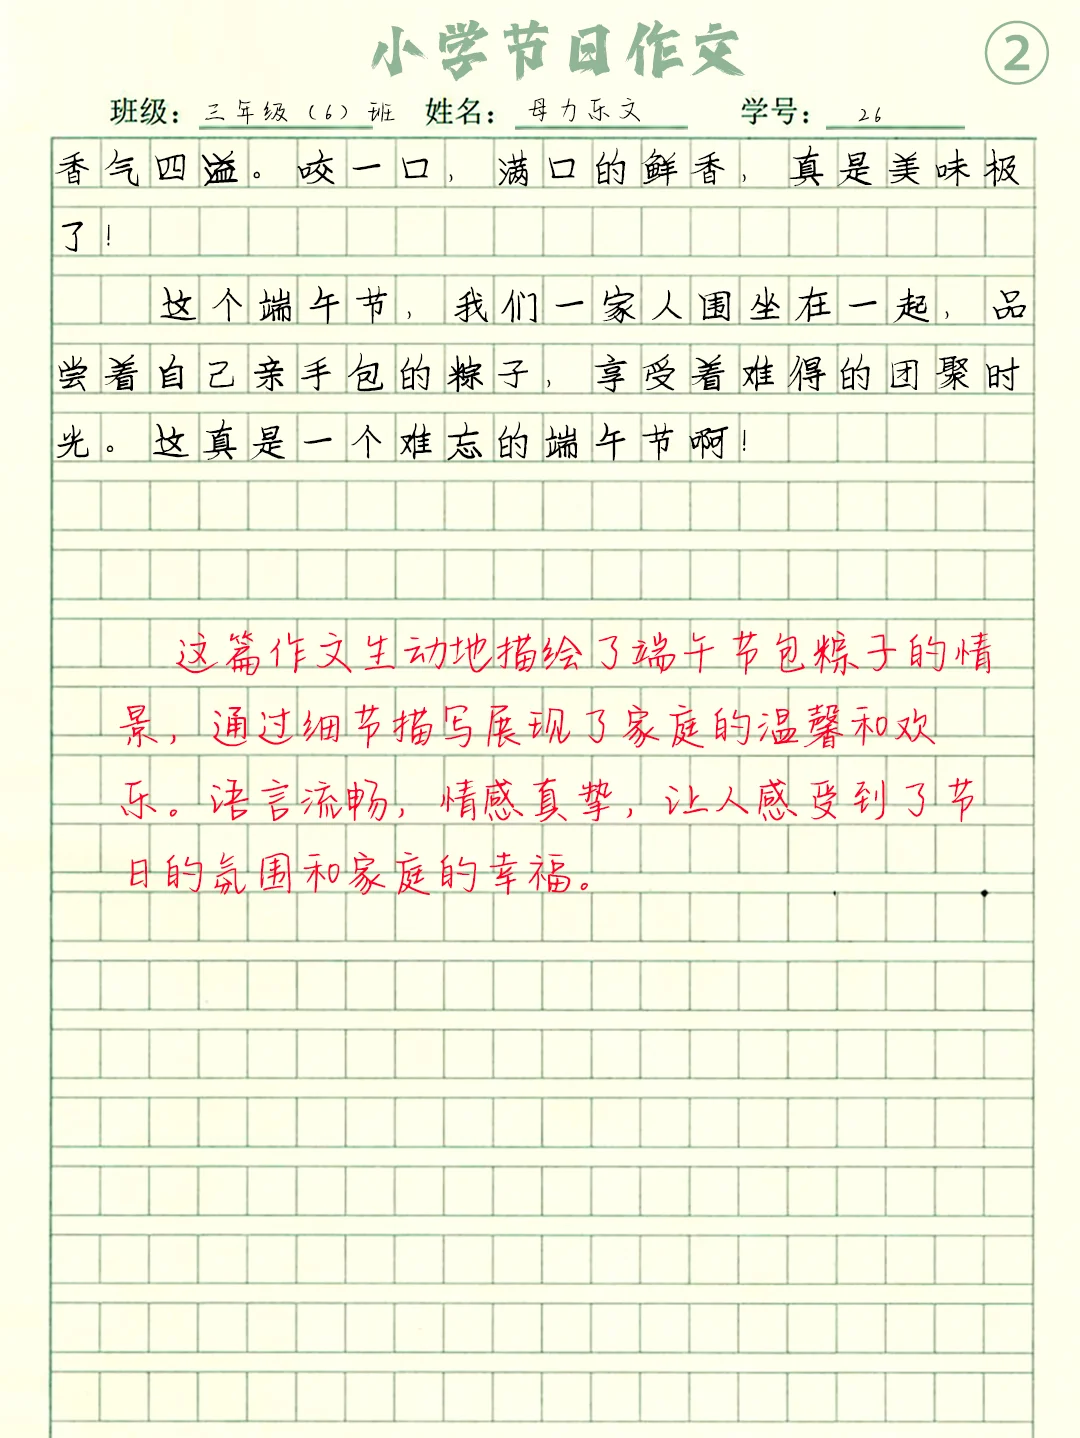 小学节日作文
2
班级：三年级（6）班 姓名：母力乐文 学号：26
香气四溢。咬一口，满口的鲜香，真是美味极
了！
这个端午节，我们一家人围坐在一起，品
尝着自己亲手包的粽子，享受着难得的团聚时
光。这真是一个难忘的端午节啊！
这篇作文生动地描绘了端午节包粽子的情
景，通过细节描写展现了家庭的温馨和欢
乐。语言流畅，情感真挚，让人感受到了节
日的氛围和家庭的幸福。